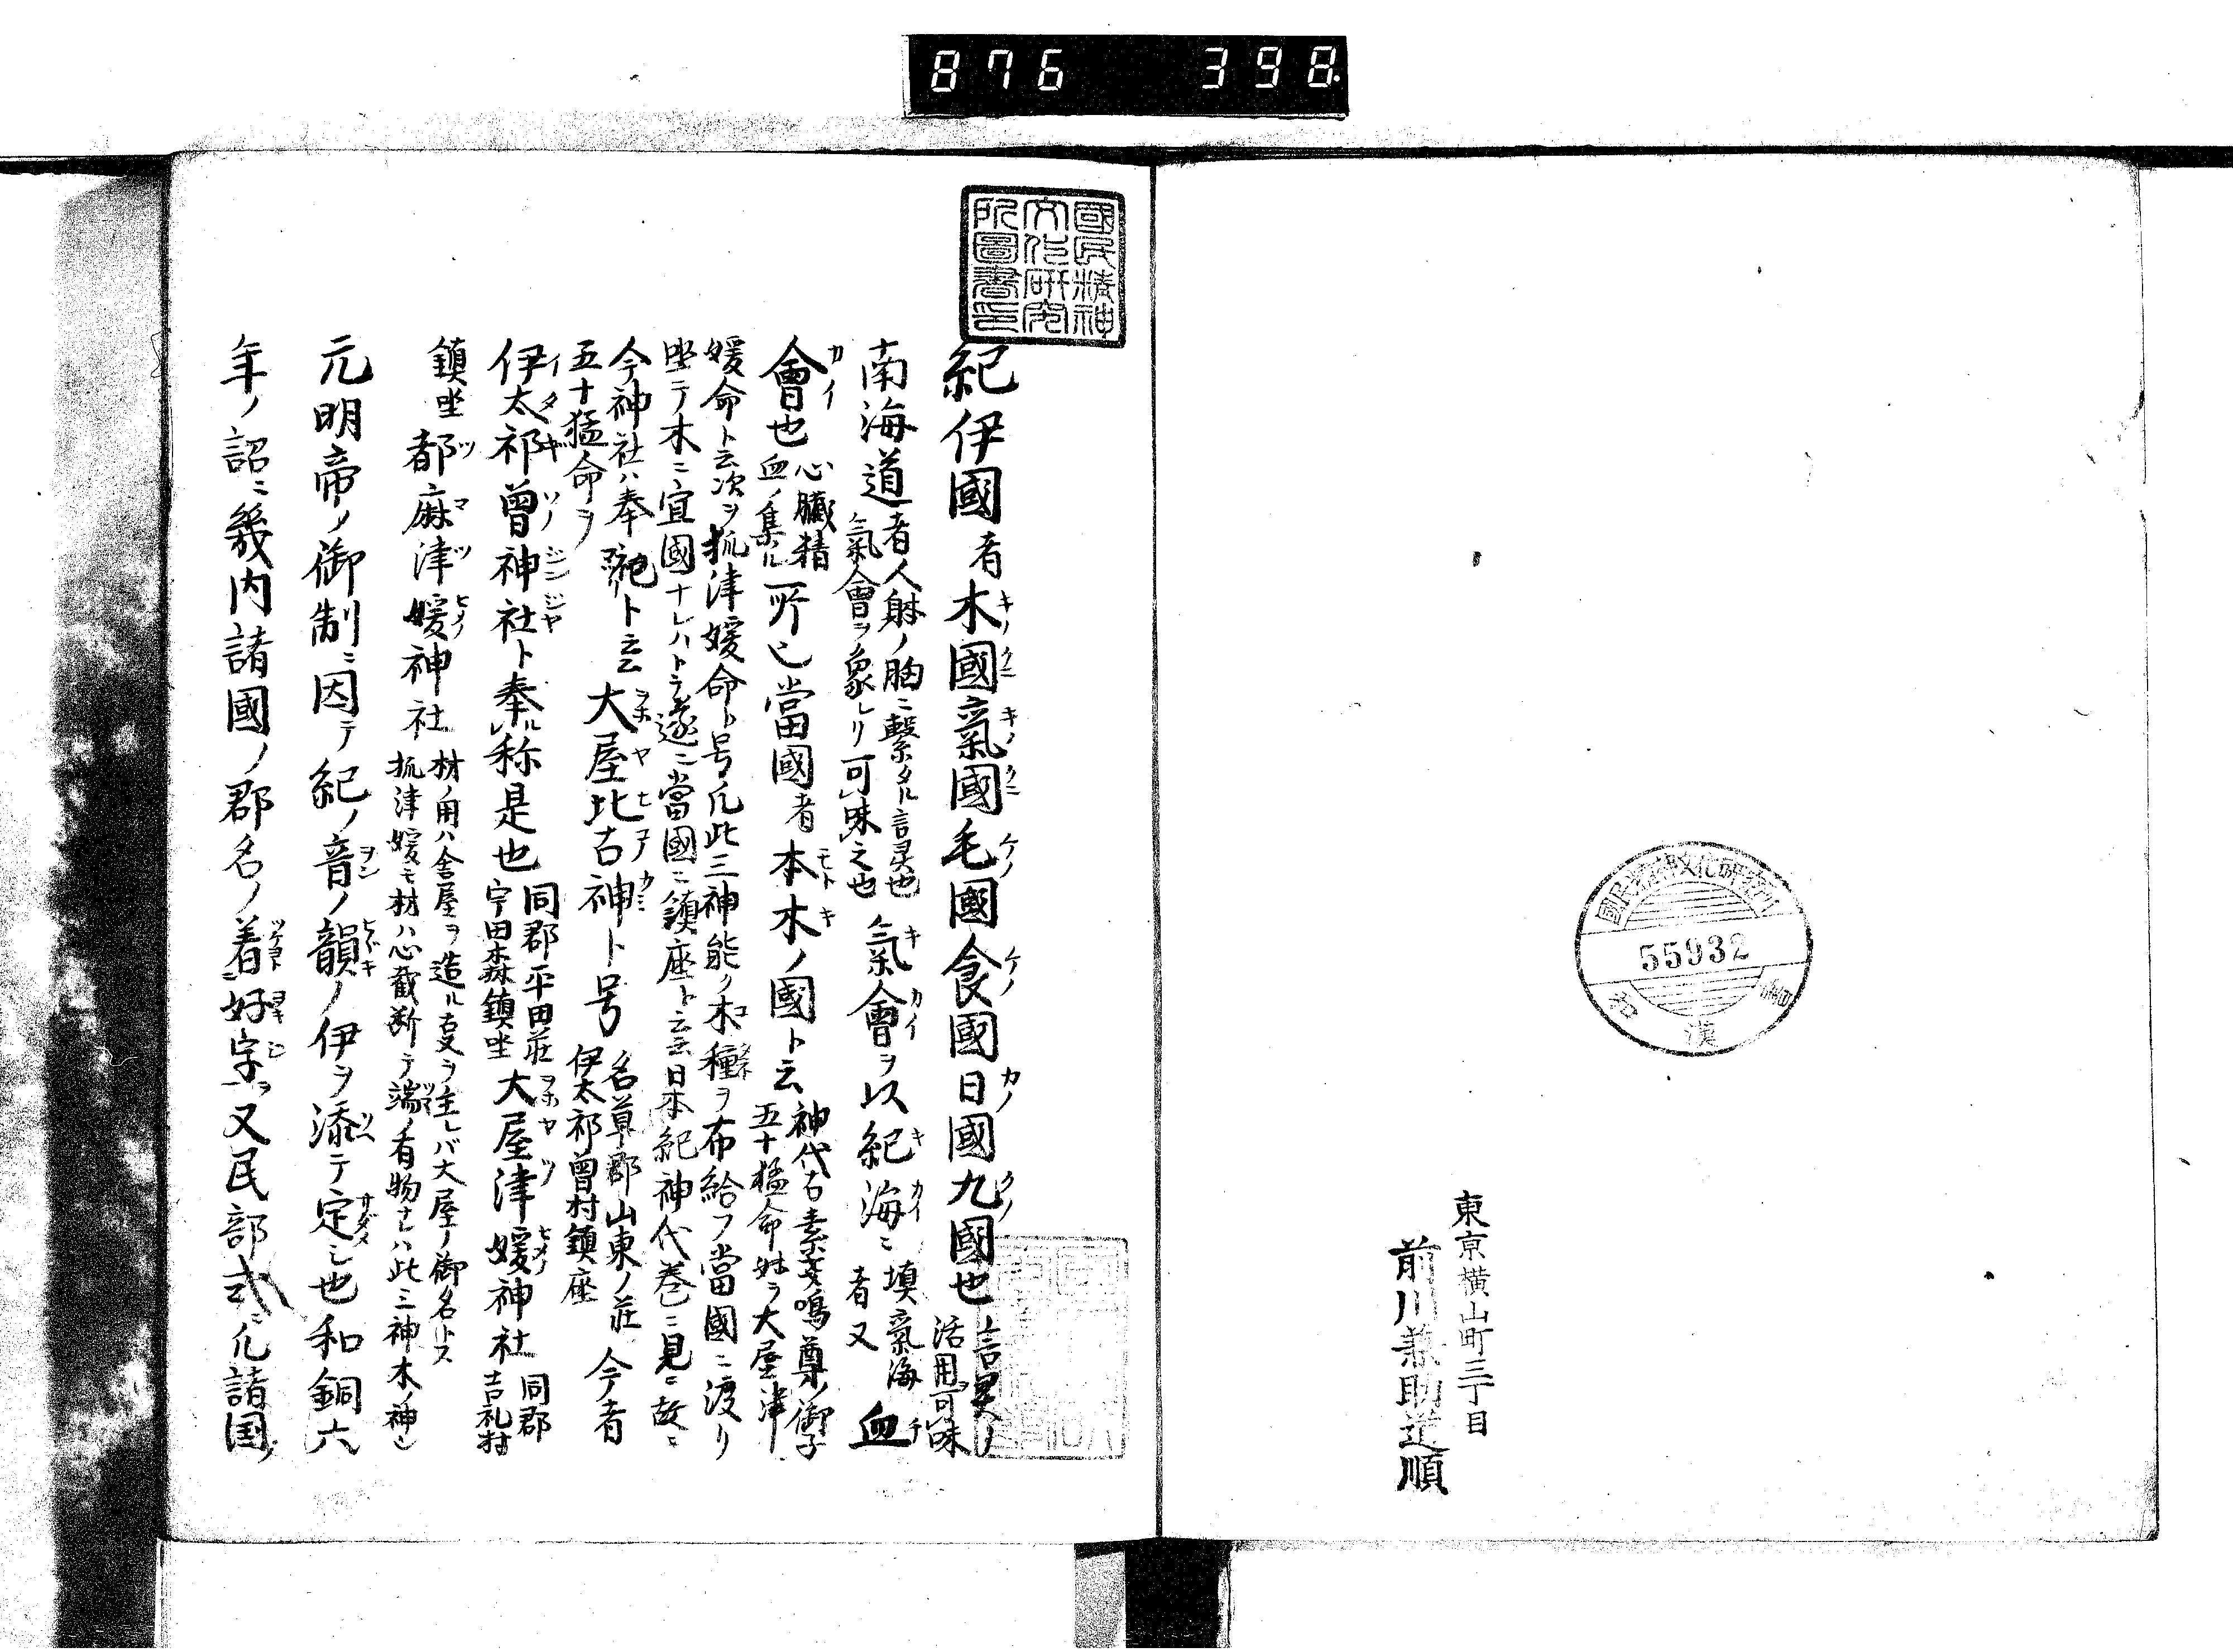 876 398
國民精神文化研究所圖書印
國民精神文化研究所
55932
漢
東京横山町三丁目
前川兼助道順
紀伊國者木國氣國毛國食國日國九國也言灵ノ
活用可味
キノクニキノクニケノケノカノクノ
南海道者人躰ノ胸ニ繋タル言灵也
氣會ヲ象レリ可味之也
氣會ヲ以紀海ニ填氣海
者又
血
キカイキカイチ
會也心臓精
血ノ集ル
所也當國者本木ノ國ト云神代古素戔嗚尊ノ御子
五十猛命妹ヲ大屋津
カイモトキ
媛命ト云次ヲ抓津媛命ト号凡此三神能ク木種ヲ布給フ當國ニ渡リ
坐テ木ニ宜國ナレハトテ遂ニ當國ニ鎮座ト云云日本紀神代巻ニ見ニ故ニ
今神社ハ奉祀ト云云
五十猛命ヲ
大屋比古神ト号名草郡山東ノ荘
伊太祁曾村鎮座
今者
ヲホヤヒコノカミ
伊太祁曾神社ト奉ル称是也同郡平田荘
宇田森鎮坐
大屋津媛神社同郡
吉礼村
イタキソノジンジヤヲホヤツヒメノ
鎮坐都麻津媛神社材ノ用ハ舎屋ヲ造ル古叓ヲ主レバ大屋ノ御名トス
抓津媛モ材ハ心截断テ端ノ有物ナレハ此三神木ノ神也
ツマツヒメノ
元明帝ノ御制ニ因テ紀ノ音ノ韻ノ伊ヲ添テ定シ也和銅六
ヲンヒビキサダメ
年ノ詔ニ畿内諸國ノ郡名ノ着好字ヲ又民部式ニ凡諸国